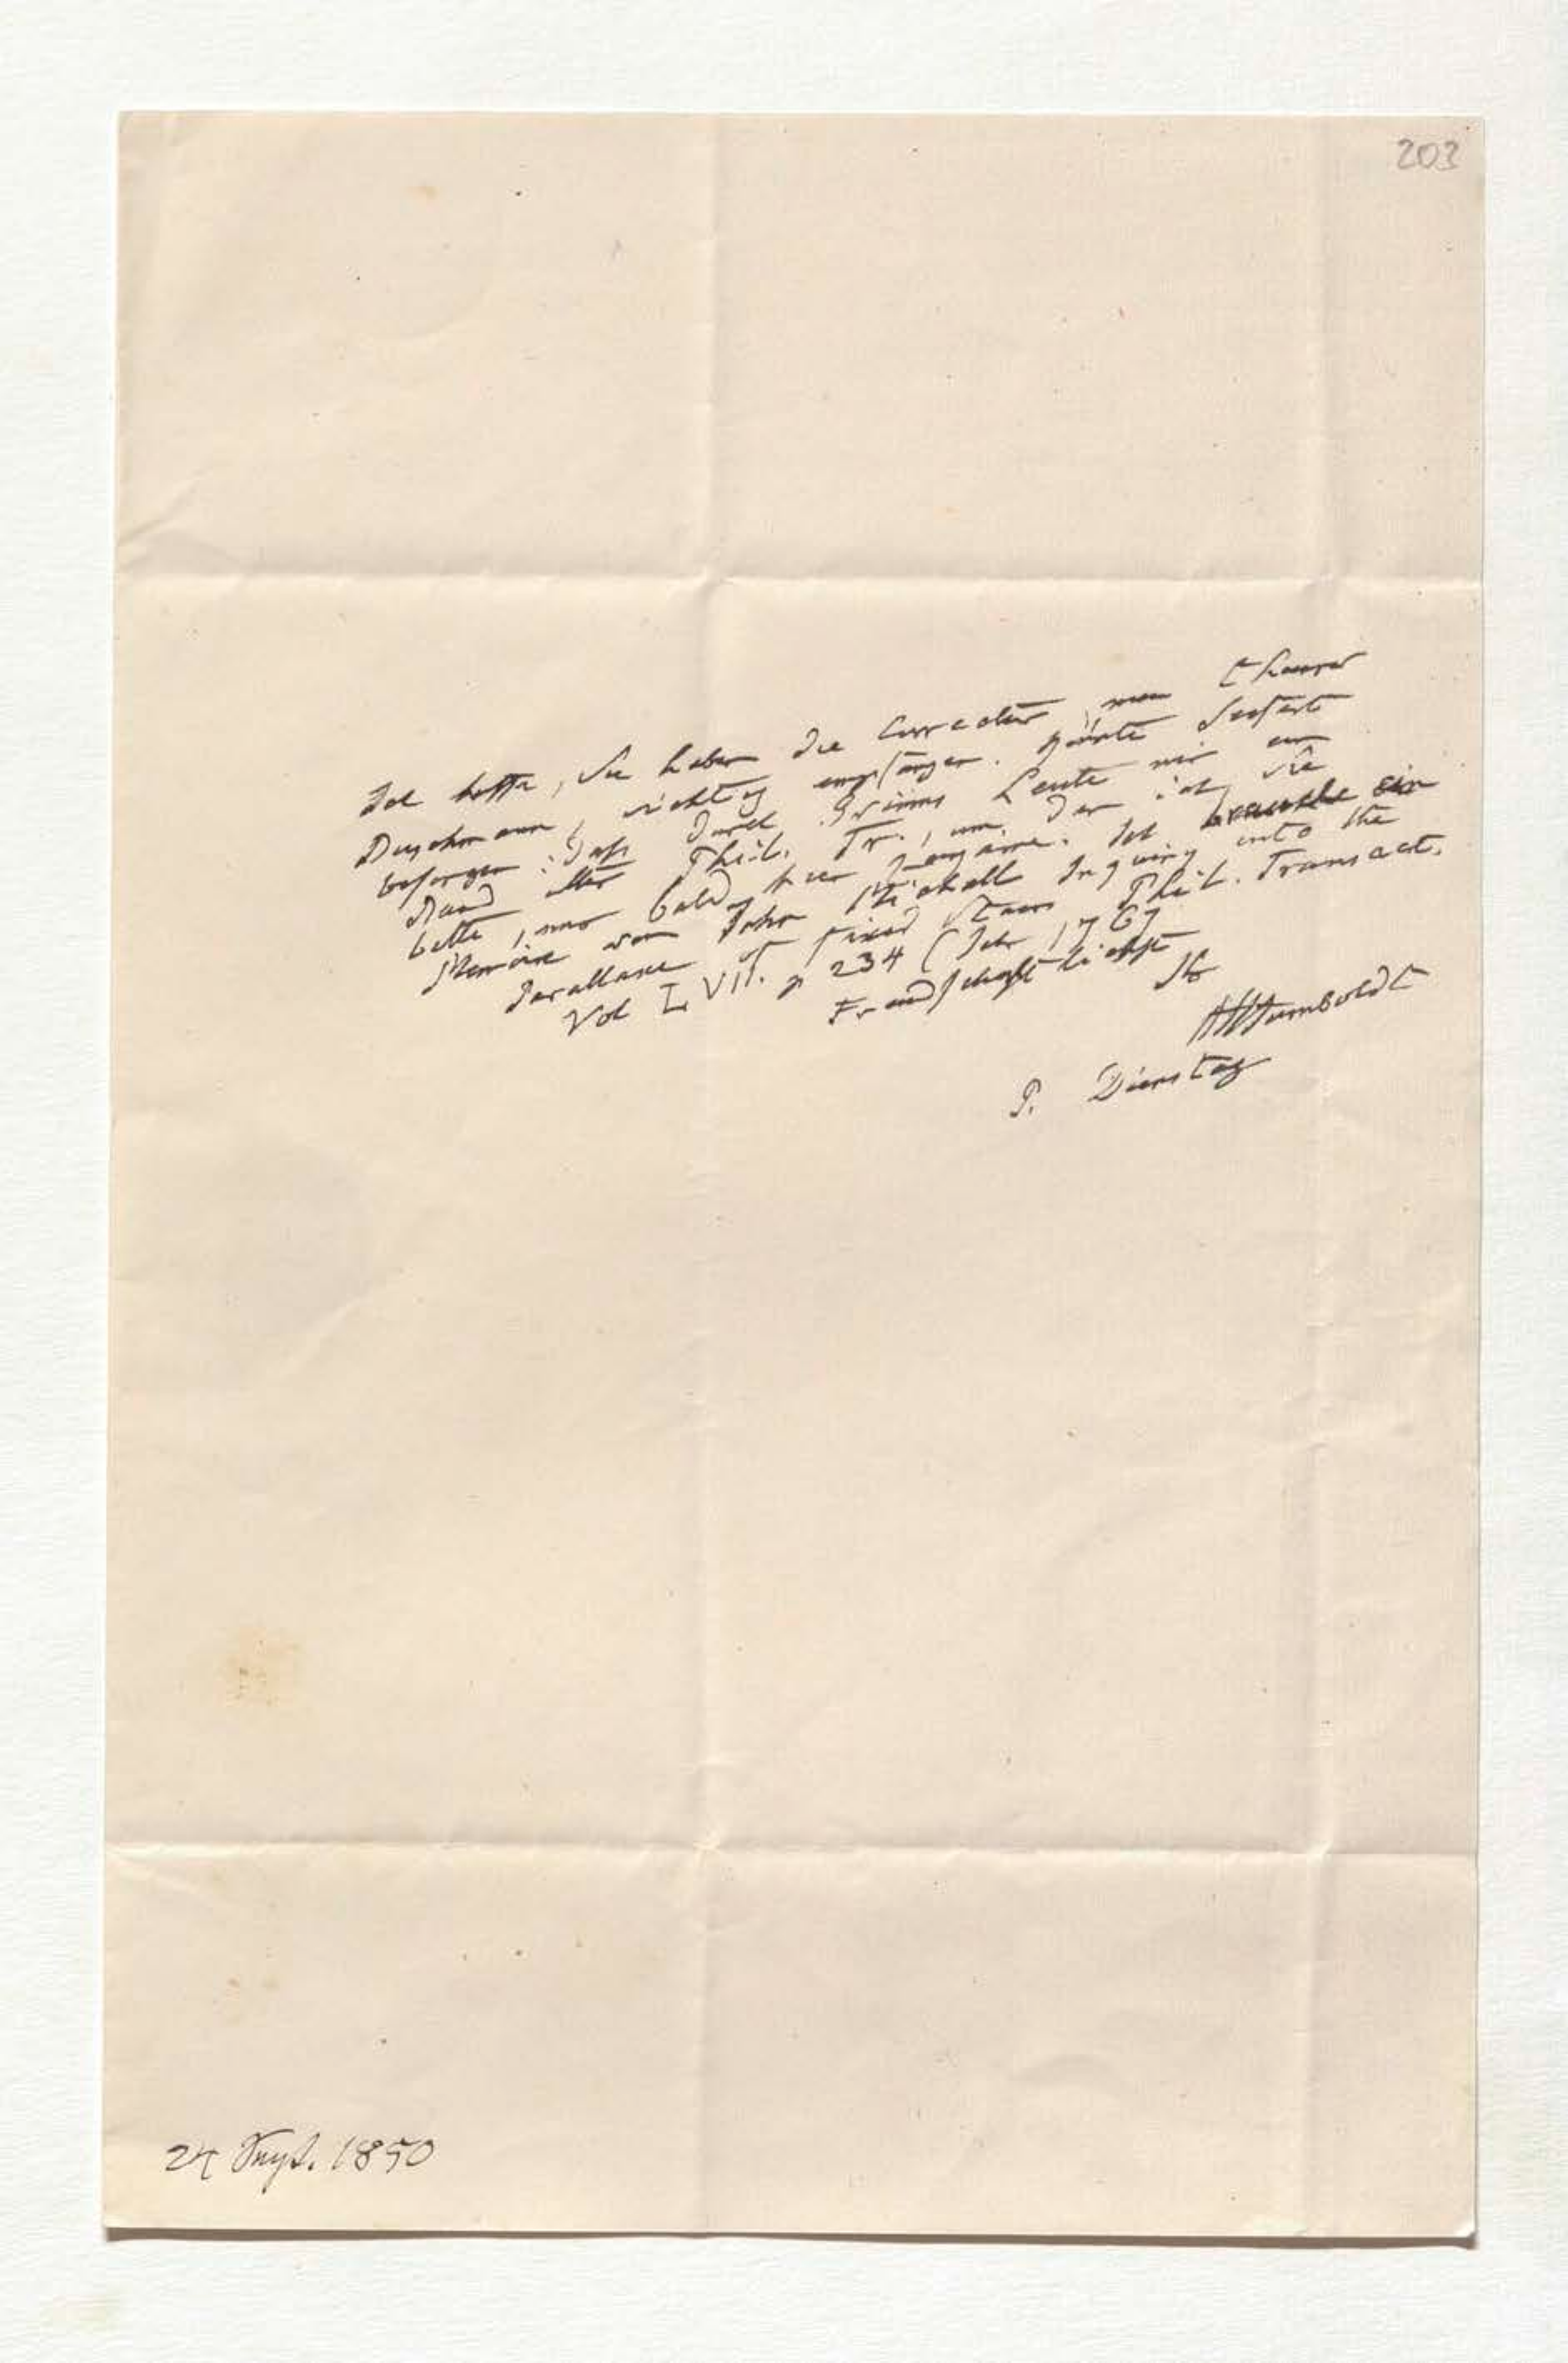 203
Ich hoffe, Sie haben die Correctur, mein theurer
Buschmann, richtig empfangen. Könnte Seifert
besorgen: daß durch Grimms Leute mir ein
Band der Phil. Tr., um den ich Sie
bitte, mir bald hier. Ich brauche ein
Memoire von John Michell Inquiry into the
Parallaxe of fixed Stars Phil. Transact.
Vol LVII. p 234 (Jahr 1767
Freundschaftlichst
Ihr
AvHumboldt
P. Dienstag
24 Sept. 1850